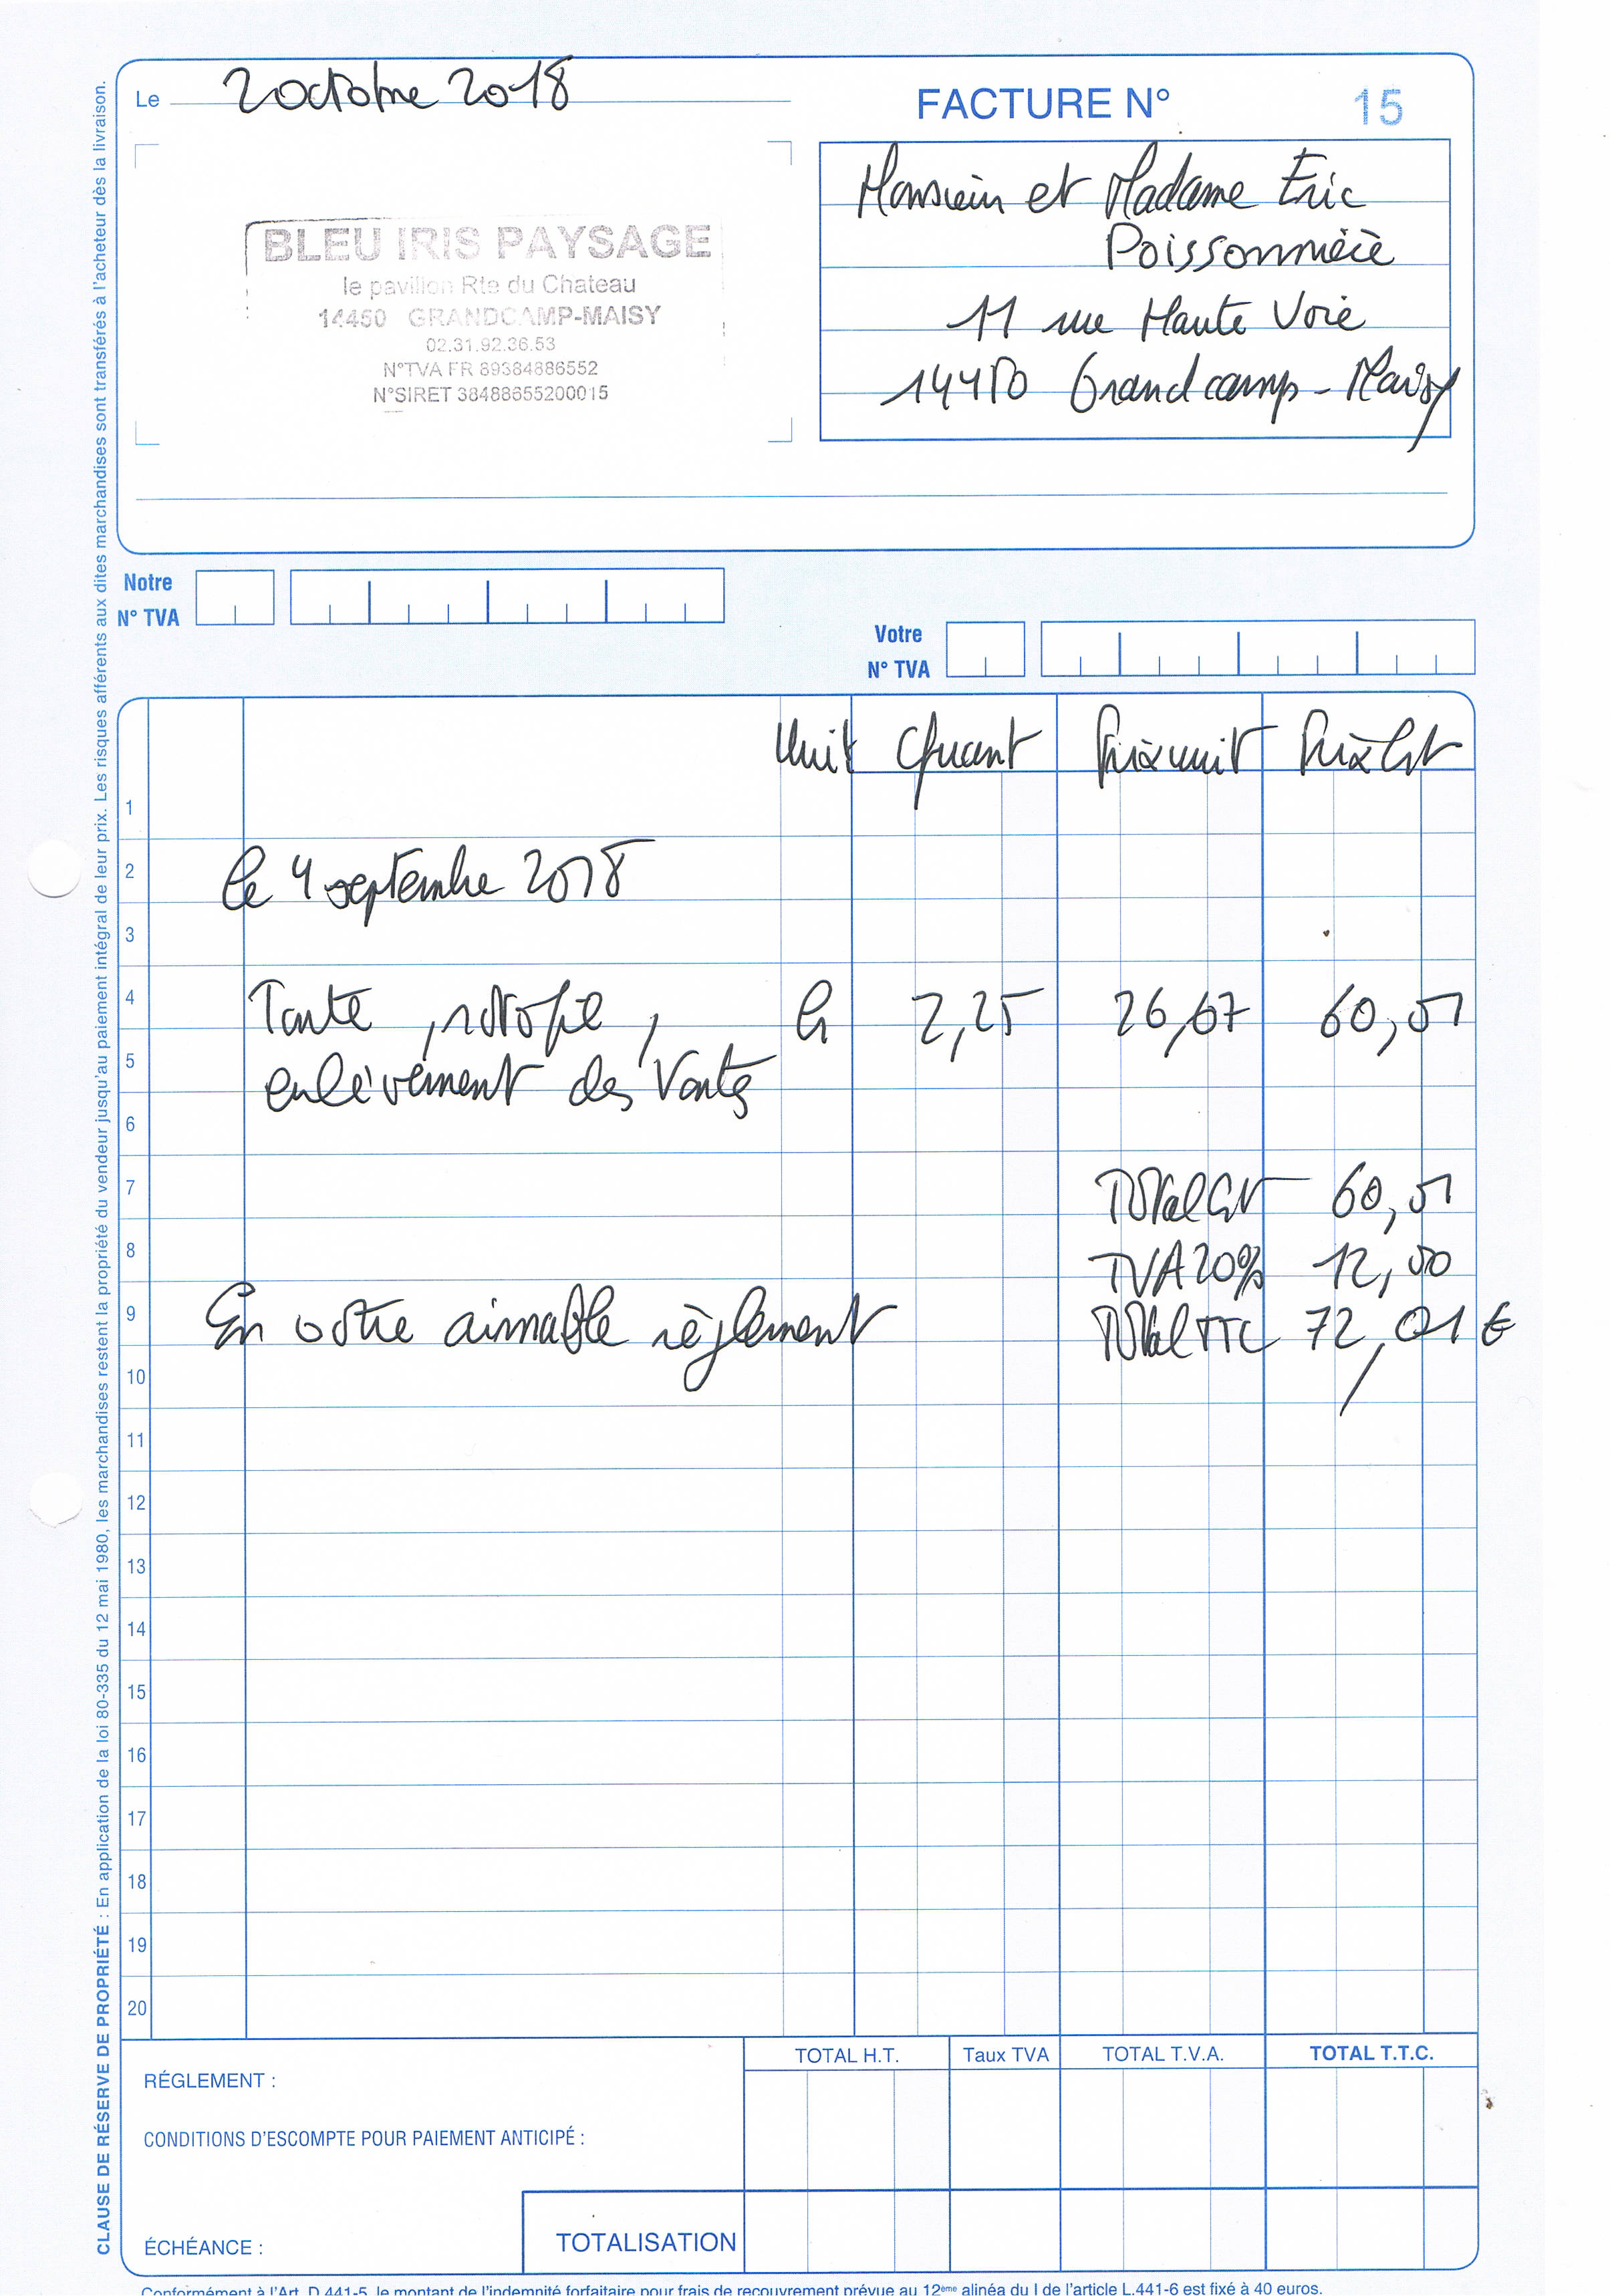 Le 2 octobre 2018
FACTURE N° 15
BLEU IRIS PAYSAGE
le pavillon Rte du Chateau
14450 GRANDCAMP-MAISY
02.31.92.36.53
N°TVA FR 89384886552
N°SIRET 38488655200015
Monsieur et Madame Eric
Poissonnière
11 rue Haute Voie
14450 Grandcamp-Maisy
Notre
N° TVA
Votre
N° TVA
Unit Quant Prix unit Prix ht
1
2 le 4 septembre 2018
3
4 Tonte, rotofil, h 2,25 26,67 60,01
5 enlèvement des Tontes
6
7 Total ht 60,01
8 TVA 20% 12,00
9 En votre aimable règlement Total TTC 72,01 €
10
11
12
13
14
15
16
17
18
19
20
TOTAL H.T. Taux TVA TOTAL T.V.A. TOTAL T.T.C.
RÉGLEMENT :
CONDITIONS D'ESCOMPTE POUR PAIEMENT ANTICIPÉ :
ÉCHÉANCE : TOTALISATION
Conformément à l'Art. D.441-5, le montant de l'indemnité forfaitaire pour frais de recouvrement prévue au 12ème alinéa du I de l'article L.441-6 est fixé à 40 euros.
CLAUSE DE RÉSERVE DE PROPRIÉTÉ : En application de la loi 80-335 du 12 mai 1980, les marchandises restent la propriété du vendeur jusqu'au paiement intégral de leur prix. Les risques afférents aux dites marchandises sont transférés à l'acheteur dès la livraison.